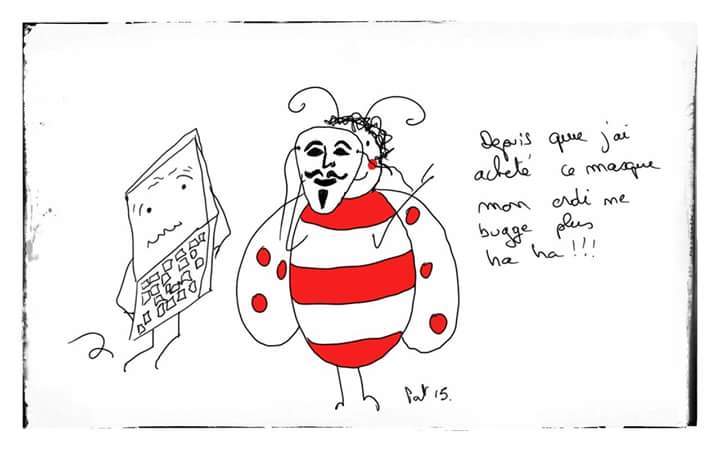 Depuis que j'ai
acheté ce masque
mon ordi me
bugge plus
ha ha !!!
Pat 15.